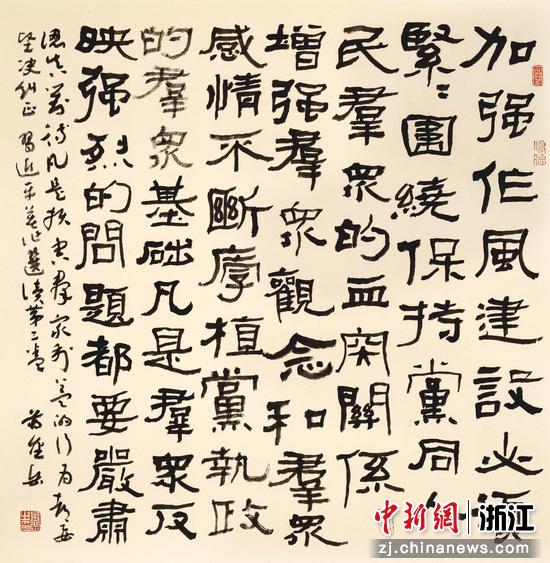 加强作風建設必須
緊〻圍繞保持黨同人
民羣衆的血肉關係
增强羣衆觀念和羣衆
感情不斷厚植黨執政
的羣衆基础凡是羣衆反
映强烈的問題都要嚴肅
认真对待凡是损害群众利益的行为都要
坚决纠正 习近平著作选读第二卷
中新網 浙江
zj.chinanews.com